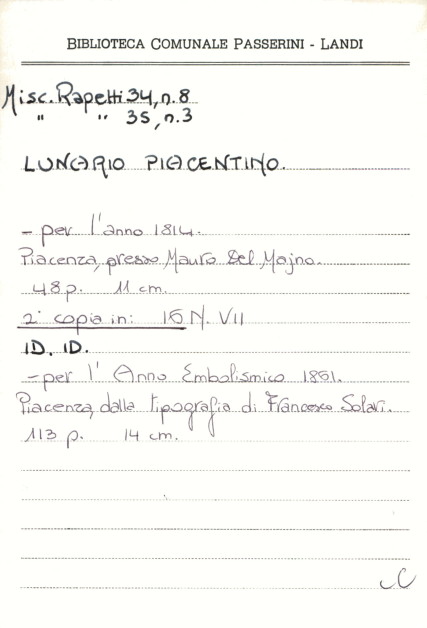 BIBLIOTECA COMUNALE PASSERINI - LANDI
Misc. Rapetti 34, n.8
" " 35, n.3
LUNARIO PIACENTINO.
- per l'anno 1814.
Piacenza, presso Mauro Del Majno.
48 p. 11 cm.
2ª copia in: 16 N. VII
ID. ID.
- per l' Anno Embolismico 1861.
Piacenza, dalla tipografia di Francesco Solari.
113 p. 14 cm.